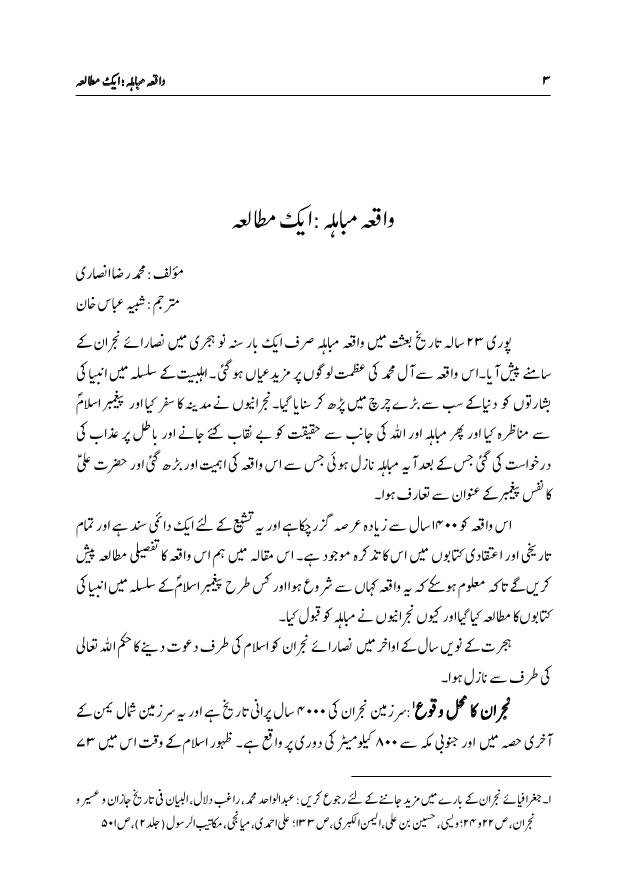 ۳ واقعہ مباہلہ: ایک مطالعہ
واقعہ مباہلہ: ایک مطالعہ
مؤلف: محمد رضا انصاری
مترجم: شبیہ عباس خان
پوری ۲۳ سالہ تاریخ بعثت میں واقعہ مباہلہ صرف ایک بار سنہ نو ہجری میں نصارائے نجران کے
سامنے پیش آیا۔ اس واقعہ سے آل محمد کی عظمت لوگوں پر مزید عیاں ہو گئی۔ اہلبیت کے سلسلہ میں انبیا کی
بشارتوں کو دنیا کے سب سے بڑے چرچ میں پڑھ کر سنایا گیا۔ نجرانیوں نے مدینہ کا سفر کیا اور پیغمبر اسلامؐ
سے مناظرہ کیا اور پھر مباہلہ اور اللہ کی جانب سے حقیقت کو بے نقاب کئے جانے اور باطل پر عذاب کی
درخواست کی گئی جس کے بعد آیہ مباہلہ نازل ہوئی جس سے اس واقعہ کی اہمیت اور بڑھ گئی اور حضرت علیؑ
کا نفس پیغمبر کے عنوان سے تعارف ہوا۔
اس واقعہ کو ۱۴۰۰ سال سے زیادہ عرصہ گزر چکا ہے اور یہ تشیع کے لئے ایک دائمی سند ہے اور تمام
تاریخی اور اعتقادی کتابوں میں اس کا تذکرہ موجود ہے۔ اس مقالہ میں ہم اس واقعہ کا تفصیلی مطالعہ پیش
کریں گے تاکہ معلوم ہو سکے کہ یہ واقعہ کہاں سے شروع ہوا اور کس طرح پیغمبر اسلامؐ کے سلسلہ میں انبیا کی
کتابوں کا مطالعہ کیا گیا اور کیوں نجرانیوں نے مباہلہ کو قبول کیا۔
ہجرت کے نویں سال کے اواخر میں نصارائے نجران کو اسلام کی طرف دعوت دینے کا حکم اللہ تعالی
کی طرف سے نازل ہوا۔
نجران کا محل وقوع۱: سرزمین نجران کی ۴۰۰۰ سال پرانی تاریخ ہے اور یہ سرزمین شمال یمن کے
آخری حصہ میں اور جنوبی مکہ سے ۸۰۰ کیلومیٹر کی دوری پر واقع ہے۔ ظہور اسلام کے وقت اس میں ۷۳
۱۔ جغرافیائے نجران کے بارے میں مزید جاننے کے لئے رجوع کریں: عبدالواحد محمد، راغب دلال، البیان فی تاریخ جازان و عسیر و
نجران، ص ۲۲ و ۲۴؛ ویسی، حسین بن علی، الیمن الکبری، ص ۱۳۳؛ علی احمدی، میانجی، مکاتیب الرسول (جلد ۲)، ص ۵۰۱